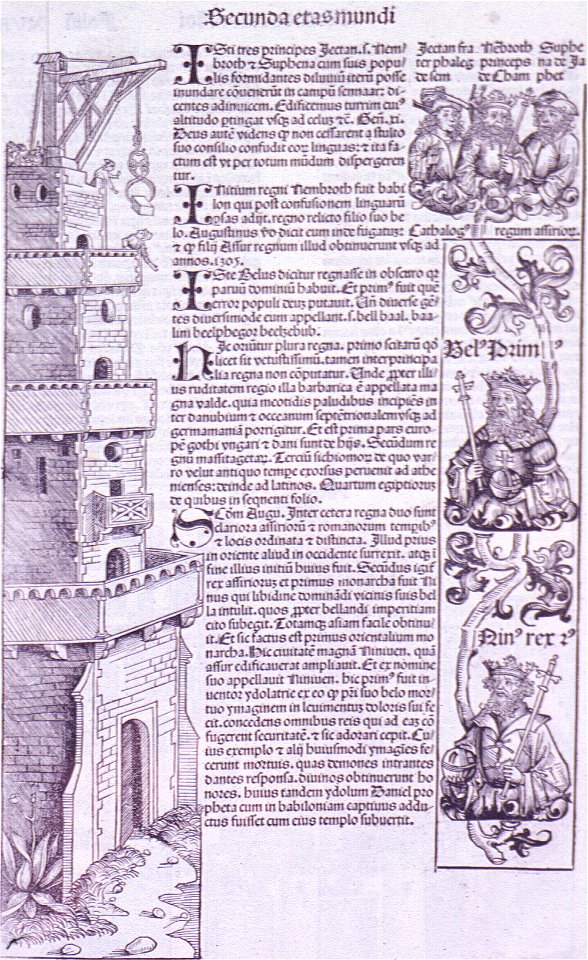 Secunda etas mundi
ISti tres principes Jectan .s. Nem-
broth ⁊ Suphena cum suis popu-
lis formidantes diluuiū iterū posse
inundare cōuenerūt in campū sennaar: di-
centes adinuicem. Edificemus turrim cuiꝰ
altitudo ptingat vsqꝫ ad celuꝫ ⁊c̄. Geñ. xi.
Deus autē videns ꝙ non cessarent a stulto
suo consilio confudit eoꝝ linguas: ⁊ ita fa-
ctum est vt per totum mūdum dispergeren
tur.
INitium regni Nembroth fuit babi
lon qui post confusionem linguarū
ꝑsas adijt. regno relicto filio suo be
lo. Augustinus v̄o dicit cum inde fugatuꝝ
⁊ ꝙ filij Assur regnum illud obtinuerunt vsqꝫ ad
annos .1305.
ISte Belus dicitur regnasse in obscuro qꝛ
paruū dominiū habuit. Et primꝰ fuit quē
error populi deuꝫ putauit. Vñ diuerse gē-
tes diuersimode eum appellant .s. bell baal. baa-
lim beelphegor beelzebub.
HIc oriūtur plura regna. primo scitarū qð
licet sit vetustissimū. tamen inter principa
lia regna non cōputatur. Unde ꝓpter illi-
us ruditatem regio illa barbarica ē appellata ma
gna valde. quia meotidis paludibus incipiēs in
ter danubium ⁊ occeanum septētrionalem vsqꝫ ad
germamaniā porrigitur. Et est prima pars euro-
pe gothi vngari ⁊ dani sunt de hijs. Secūdum re
gnū massitagetaꝝ. Terciū sichiomoꝝ de quo var-
ro velut antiquo tempe exorsus peruenit ad athe
nienses: deinde ad latinos. Quartum egiptioꝝ
de quibus in seqnenti folio.
SCðm Augu. Inter cetera regna duo sunt
clariora assirioꝝ ⁊ romanorum tempibꝰ
⁊ locis ordinata ⁊ distincta. Illud prius
in oriente aliud in occidente surrexit. atqꝫ ī
fine illius initiū huius fuit. Secūdus igit̄
rex assirioruꝫ et primus monarcha fuit Ni
nus qui libidine dominādi vicinis suis bel
la intulit. quos ꝓpter bellandi imperitiam
cito subegit. Totamqꝫ asiam facile obtinu-
it. Et sic factus est primus orientalium mo
narcha. Hic ciuitatē magnā Niniuen, quā
assur edificauerat ampliauit. Et ex nomine
suo appellauit Niniuen. hic primꝰ fuit in
uentor ydolatrie ex eo ꝙ pri suo belo mor-
tuo ymaginem in leuimentuꝫ doloris sui fe
cit. concedens omnibus reis qui ad eaꝫ cō
fugerent securitatē. ⁊ sic adorari cepit. Cu
ius exemplo ⁊ alij huiusmodi ymagies fe
cerunt mortuis. quas demones intrantes
dantes responsa. diuinos obtinuerunt ho
nores. huius tandem ydolum Daniel pro
pheta cum in babiloniam captiuus addu-
ctus fuisset cum eius templo subuertit.
Jectan fra Nēbroth Suphe
ter phaleg princeps na de Ja
de sem de Cham phet
Cathalogꝰ regum assirioꝝ.
Belꝰ Primꝰ
Ninꝰ rex 2ꝰ